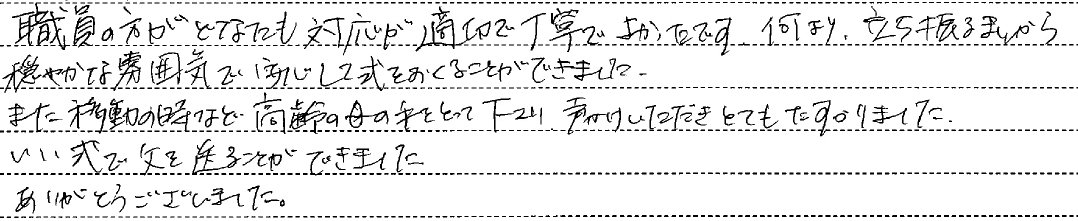 職員の方がどなたも対応が適切で丁寧でよかったです。何より、立ち振るまいから
穏やかな雰囲気で安心して式をおくることができました。
また移動の時など高齢の母の手をとって下さり、声かけいただきとてもたすかりました。
いい式で父を送ることができました
ありがとうございました。